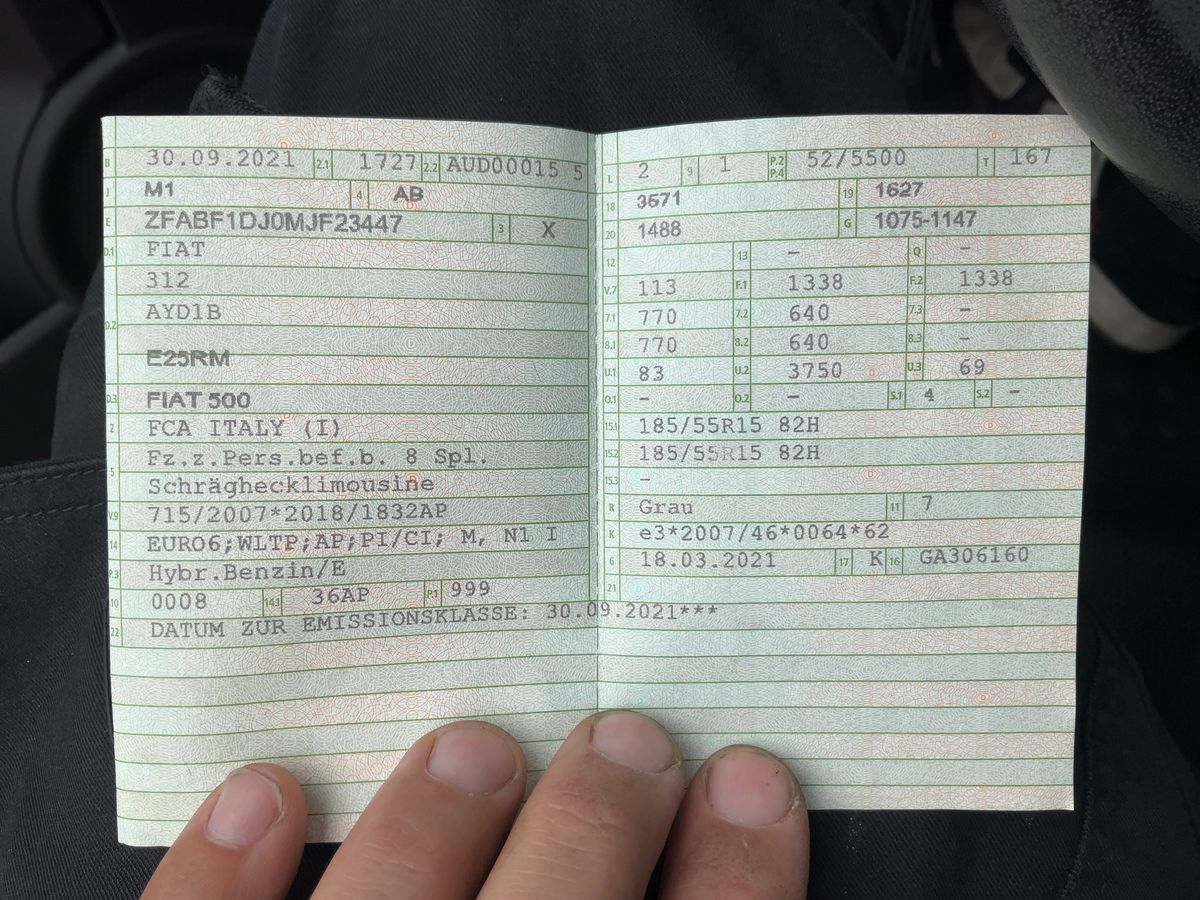 B 30.09.2021 2.1 1727 2.2 AUD00015 5
J M1 4 AB
E ZFABF1DJ0MJF23447 3 X
D.1 FIAT
312
D.2 AYD1B
E25RM
D.3 FIAT 500
2 FCA ITALY (I)
5 Fz.z.Pers.bef.b. 8 Spl.
Schräghecklimousine
V.9 715/2007*2018/1832AP
14 EURO6;WLTP;AP;PI/CI; M, N1 I
P.3 Hybr.Benzin/E
10 0008 14.1 36AP P.1 999
22 DATUM ZUR EMISSIONSKLASSE: 30.09.2021***
L 2 9 1 P.2 P.4 52/5500 T 167
18 3571 19 1627
20 1488 G 1075-1147
12 13 – Q –
V.7 113 F.1 1338 F.2 1338
7.1 770 7.2 640 7.3 –
8.1 770 8.2 640 8.3 –
U.1 83 U.2 3750 U.3 69
O.1 – O.2 – S.1 4 S.2 –
15.1 185/55R15 82H
15.2 185/55R15 82H
15.3 –
R Grau 11 7
K e3*2007/46*0064*62
6 18.03.2021 17 K 16 GA306160
21